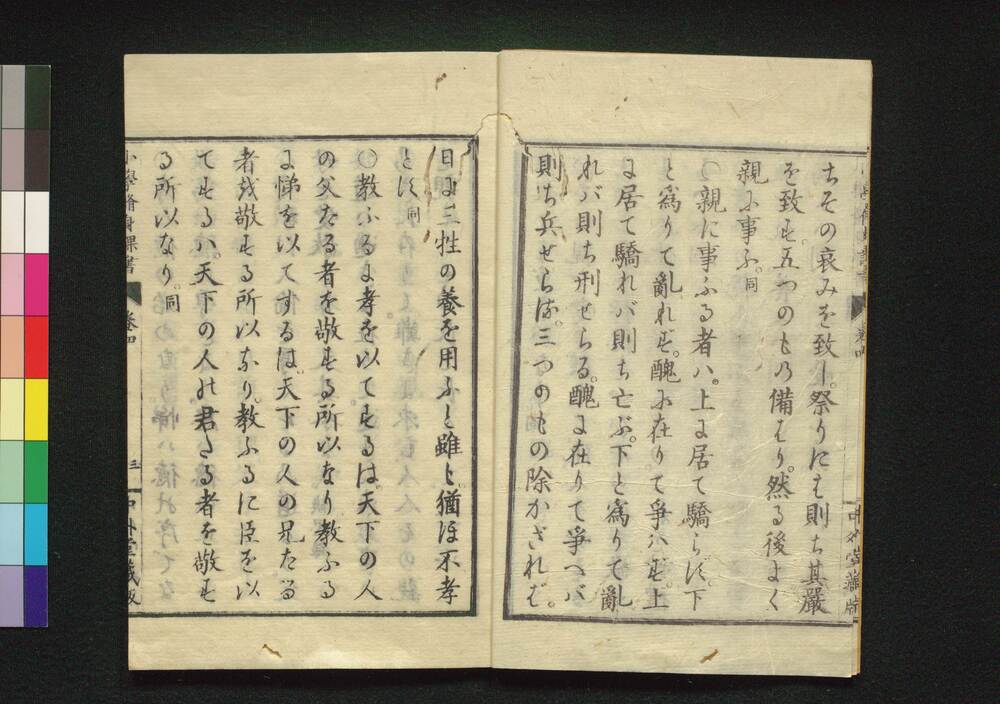 ちその哀みを致し。祭りには則ち其嚴
を致す。五つのもの備はり。然る後よく
親に事ふ。同
〇親に事ふる者ハ。上に居て驕らず。下
と爲りて亂れず。醜に在りて爭ハず。上
に居て驕れバ則ち亡ぶ。下と爲りて亂
れバ則ち刑せらる。醜に在りて爭へバ
則ち兵せらる。三つのもの除かざれば。
日に三牲の養を用ふと雖ども。猶ほ不孝
とす。同
〇教ふるに孝を以てするは。天下の人
の父たる者を敬する所以なり教ふる
に悌を以てするは。天下の人の兄たる
者を敬する所以なり。教ふるに臣を以
てするハ。天下の人の君たる者を敬す
る所以なり。同
小學脩身課書
卷四
三
中外堂藏版